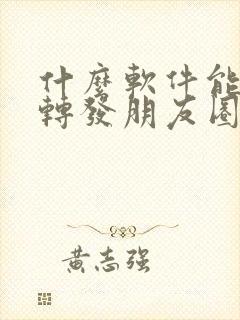 什麼軟件能
轉發朋友圈
黃志强